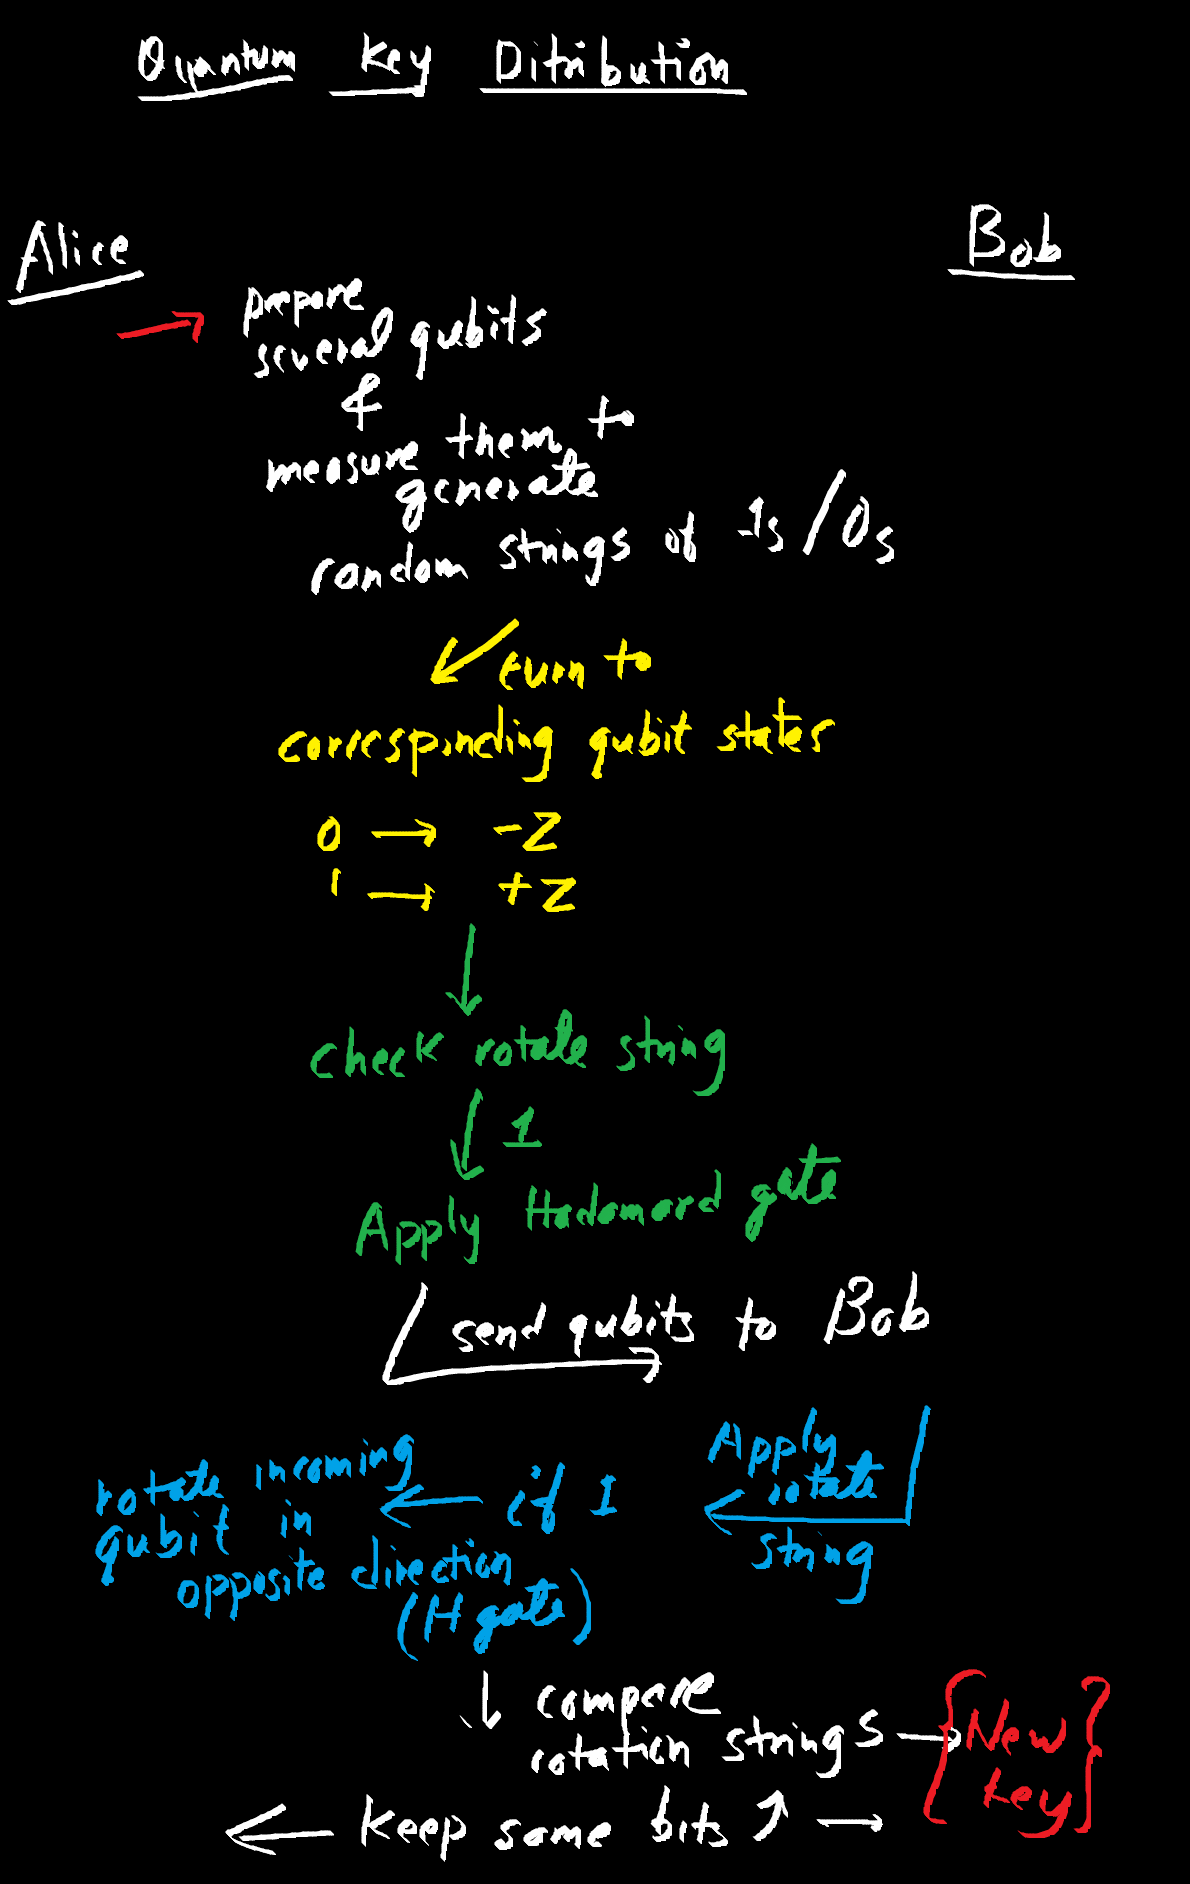 Quantum Key Ditribution
Alice
Bob
prepare
several qubits
&
measure them to
generate
random strings of 1s/0s
turn to
correspinding qubit states
0 → -Z
1 → +Z
check rotate string
1
Apply Hadamard gate
send qubits to Bob
Apply
rotate
string
if 1
rotate incoming
qubit in
opposite direction
(H gate)
compare
rotation strings → {New
key}
← keep same bits →